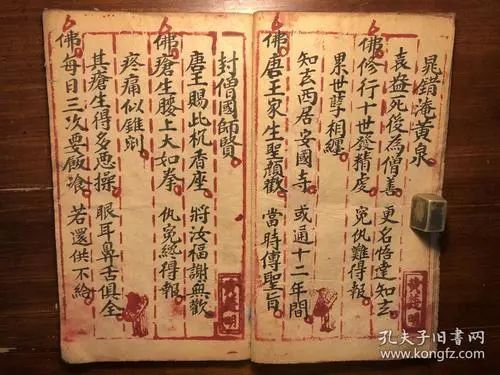 晁錯淹黃泉
袁盎死後為僧善 更名悟達知玄
佛修行十世發精虔 冤仇難得報
累世孽相纏
知玄西居安國寺 或通十二年間
佛唐王家生聖顏歡 當時傳聖旨
封僧國師賢
唐王賜此杭香座 將汝福謝與歡
佛瘡生腰上大如拳 仇冤總得報
疼痛似錐剜
其瘡生得多悪操 眼耳鼻舌俱全
佛每日三次要飯飡 若還供不給
孔夫子旧书网
www.kongfz.com